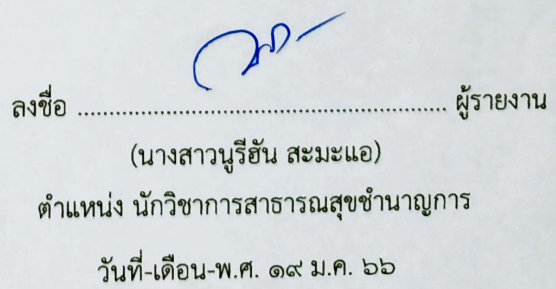 ลงชื่อ ................................................ ผู้รายงาน
(นางสาวนูรีฮัน สะมะแอ)
ตำแหน่ง นักวิชาการสาธารณสุขชำนาญการ
วันที่-เดือน-พ.ศ. ๑๙ ม.ค. ๖๖